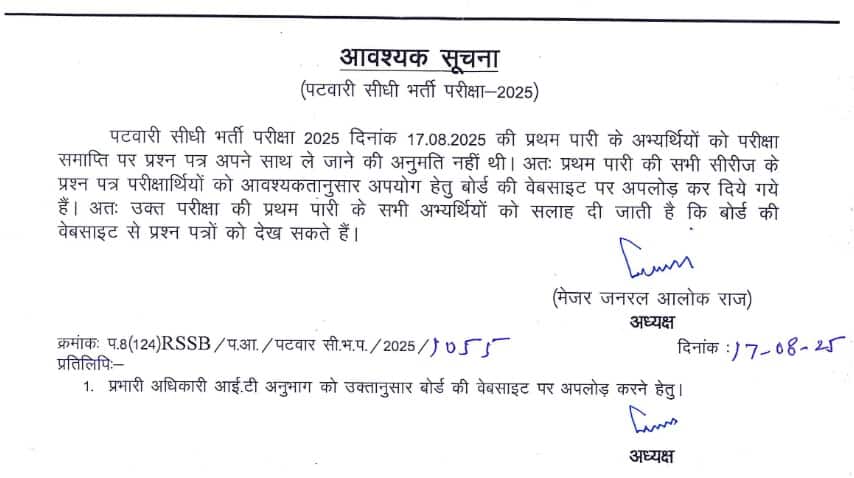 आवश्यक सूचना
(पटवारी सीधी भर्ती परीक्षा–2025)
पटवारी सीधी भर्ती परीक्षा 2025 दिनांक 17.08.2025 की प्रथम पारी के अभ्यर्थियों को परीक्षा
समाप्ति पर प्रश्न पत्र अपने साथ ले जाने की अनुमति नहीं थी। अतः प्रथम पारी की सभी सीरीज के
प्रश्न पत्र परीक्षार्थियों को आवश्यकतानुसार अपयोग हेतु बोर्ड की वेबसाइट पर अपलोड़ कर दिये गये
हैं। अतः उक्त परीक्षा की प्रथम पारी के सभी अभ्यर्थियों को सलाह दी जाती है कि बोर्ड की
वेबसाइट से प्रश्न पत्रों को देख सकते हैं।
(मेजर जनरल आलोक राज)
अध्यक्ष
क्रमांकः प.8(124)RSSB/प.आ./पटवार सी.भ.प./2025/1055 दिनांक :17-08-25
प्रतिलिपिः–
1. प्रभारी अधिकारी आई.टी अनुभाग को उक्तानुसार बोर्ड की वेबसाइट पर अपलोड़ करने हेतु।
अध्यक्ष